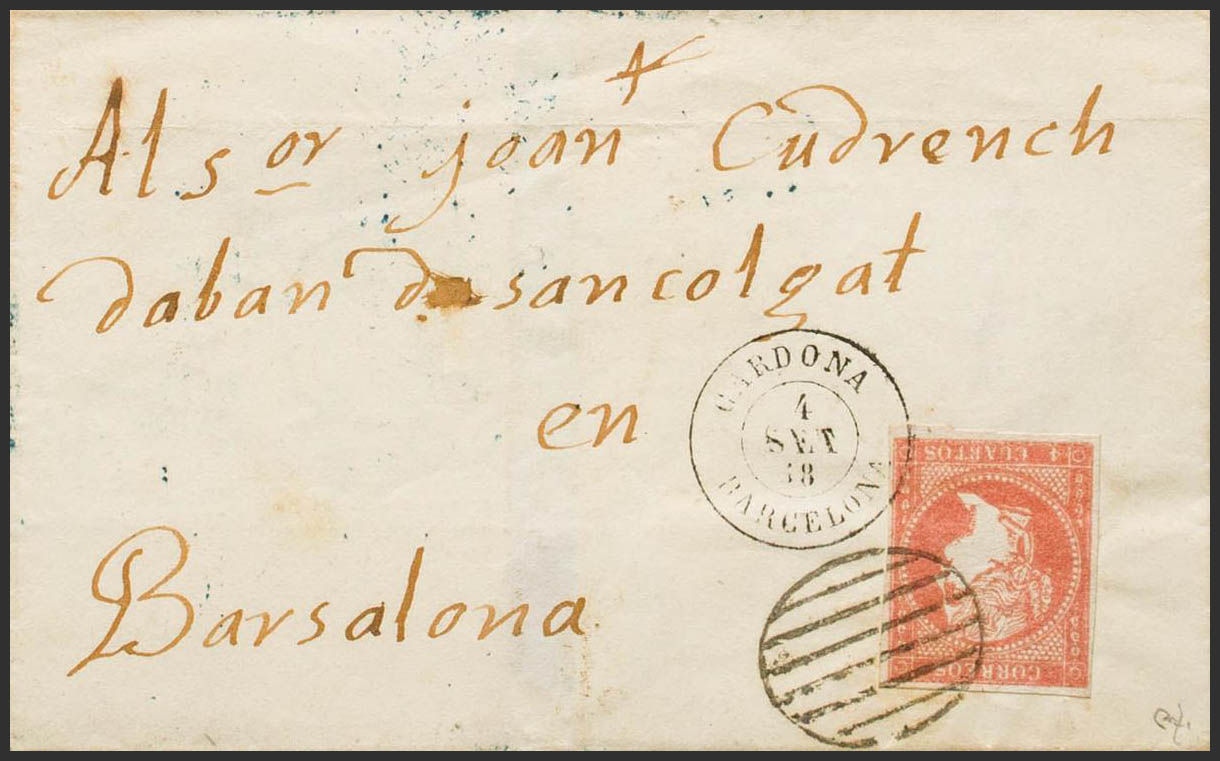 Al sor joan Cudrench
daban de sancolgat
en
Barsalona
CARDONA
4
SET
58
BARCELONA
4 CUARTOS
CORREOS